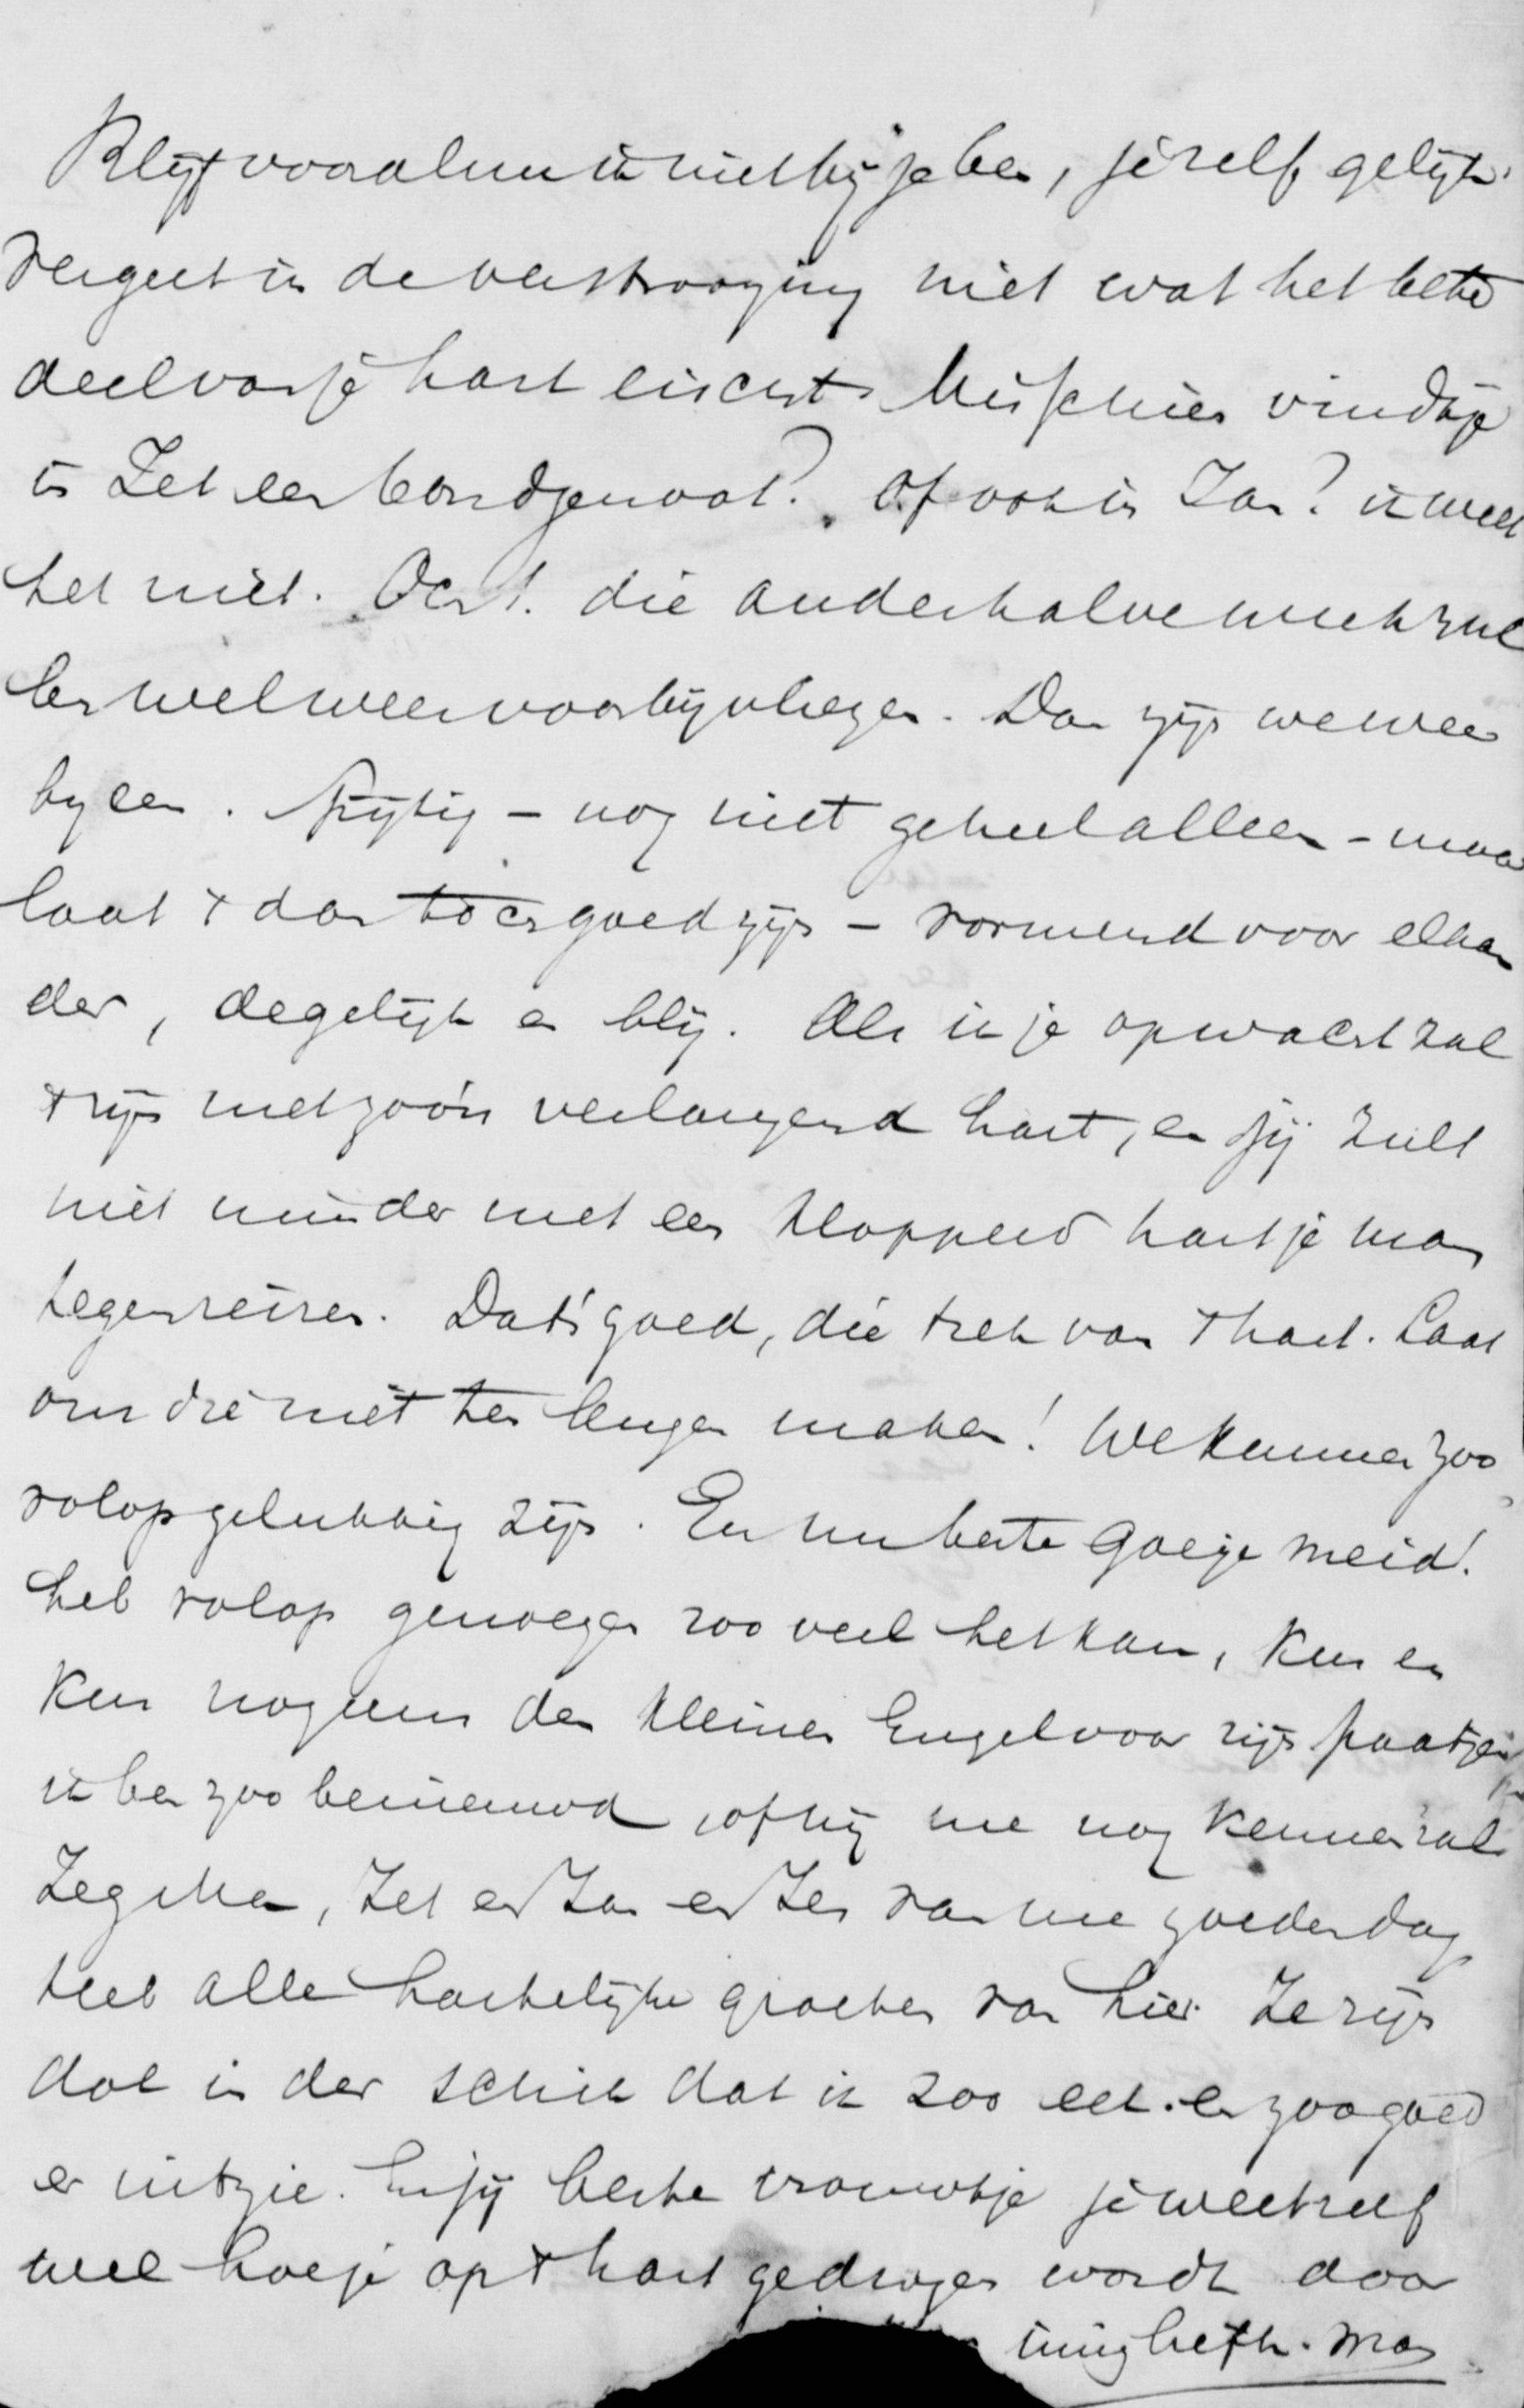 Blijf vooral nu ik niet bij je ben, jezelf gelijk.
Vergeet in de verstrooying niet wat het beste
deel van je hart eischt. Misschien vind je
in Zet een bondgenoot? Of ook in Jan? ik weet
het niet. Och! die anderhalve week zul
len wel weer voorbijvliegen. Dan zijn we weer
byeen. Spijtig - nog niet geheel alleen - maar
laat t dan toch goed zijn - vormend voor elkan
der, degelijk en blij. Als ik je opwacht zal
t zijn met zoo'n verlangend hart, en jij zult
niet minder met een kloppend hart je man
tegenreizen. Dat's goed, die trek van t hart. Laat
ons die niet ten leugen maken! We kunnen zoo
volop gelukkig zijn. En nu beste goeije meid!
heb volop genoegen zoo veel het kan, kus en
kus nog eens den kleinen Engel voor zijn paatje
ik ben zoo benieuwd of hij me nog kennen zal
Zeg Ma, Zet en Jan en Jes van me goeden dag
Heb alle hartelijke groeten van hier. Ze zijn
dol in der schik dat ik zoo eet en zoo goed
er uitzie. En jij beste vrouwtje je weet zelf
wel hoe je op t hart gedragen wordt door
innig liefh. man